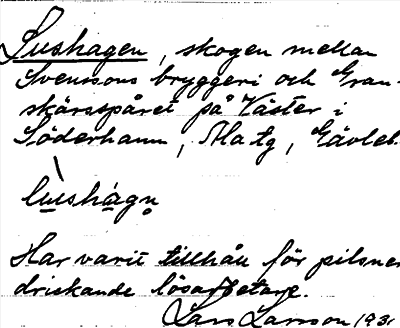 Lushagen, skogen mellan
Svenssons bryggeri och Gran-
skärsspåret på Väster i
Söderhamn, Ala tg, Gävleb.
lùshágn̥
Har varit tillhåll för pilsner
drickande lösarbetare.
Lars Larsson 1931